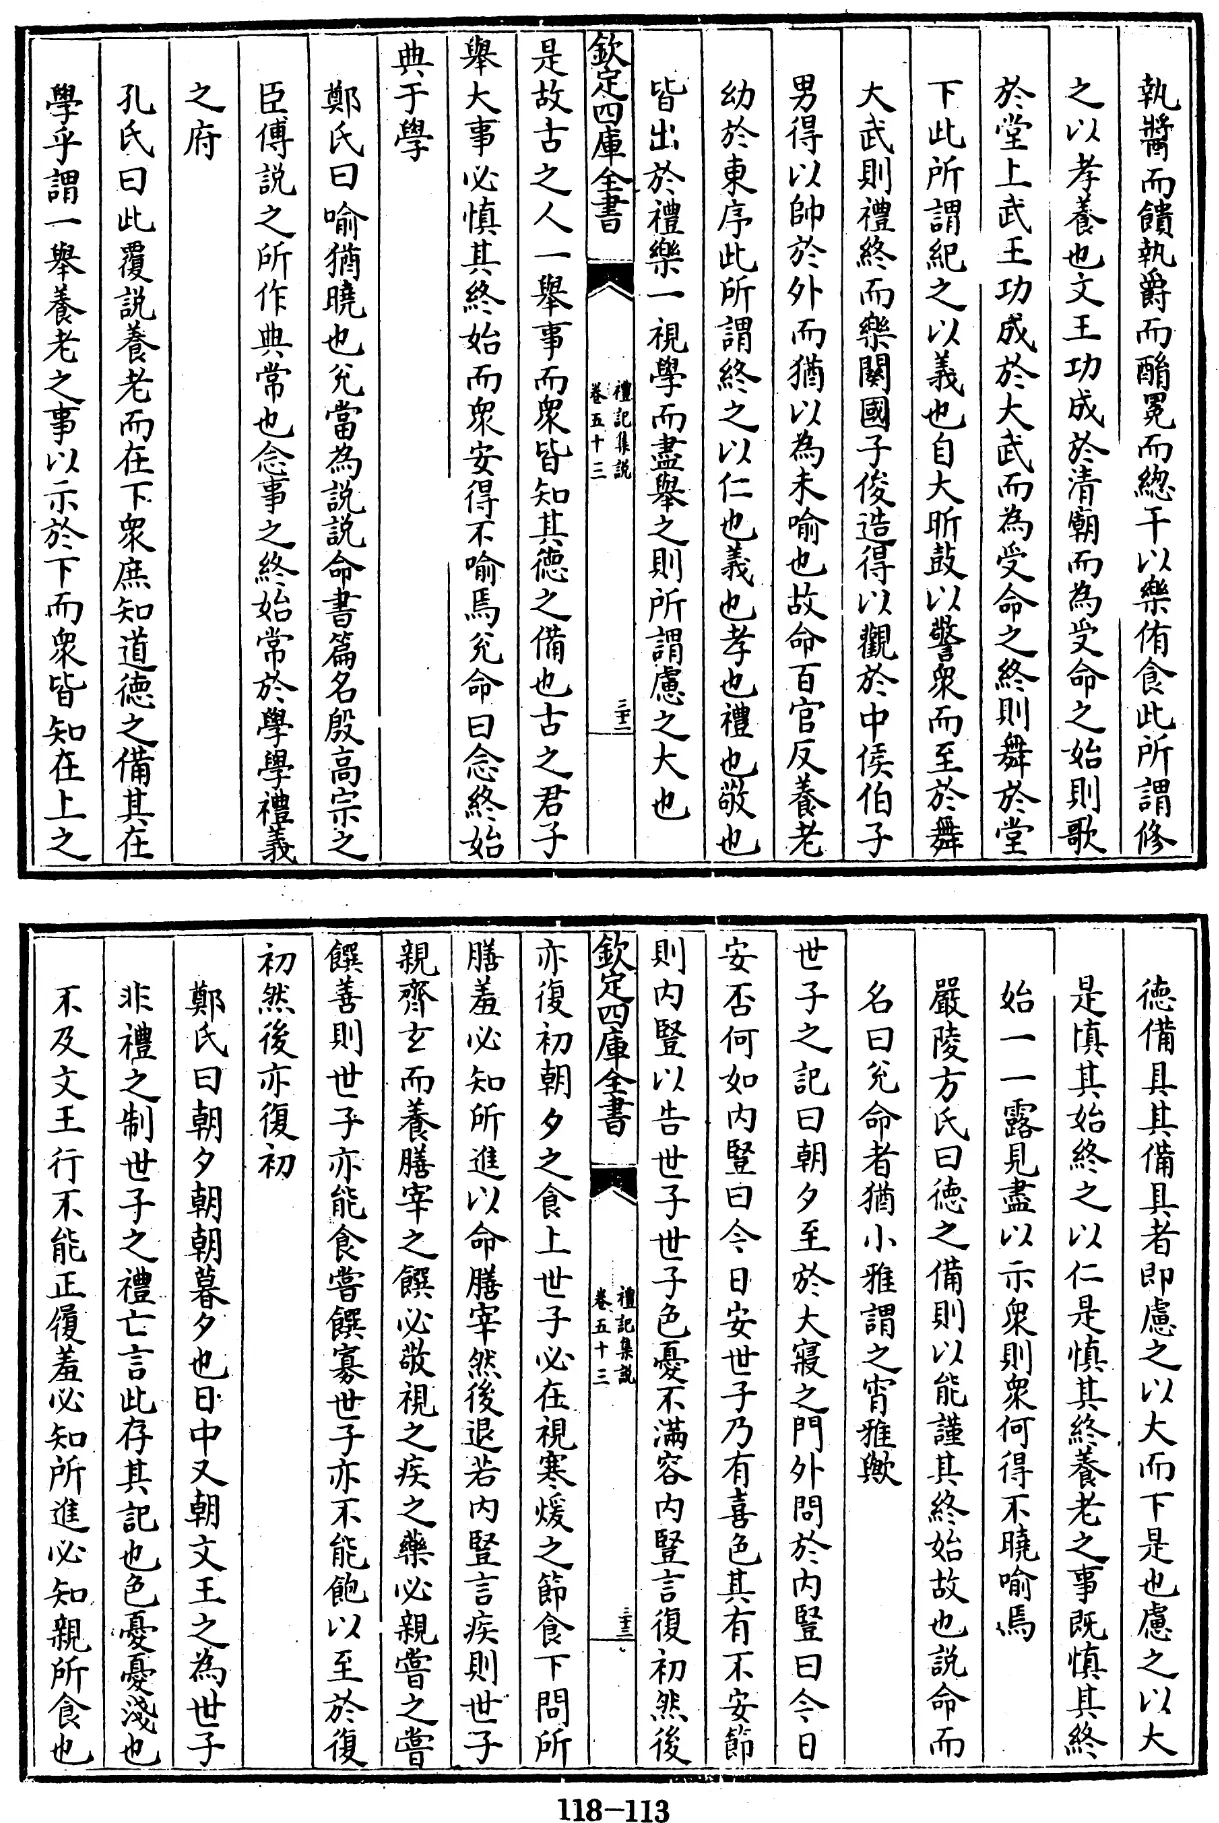 執醬而饋執爵而酳冕而緫干以樂侑食此所謂修
之以孝養也文王功成於清廟而為受命之始則歌
於堂上武王功成於大武而為受命之終則舞於堂
下此所謂紀之以義也自大昕鼓以警衆而至於舞
大武則禮終而樂闋國子俊造得以觀於中侯伯子
男得以帥於外而猶以為未喻也故命百官反養老
幼於東序此所謂終之以仁也義也孝也禮也敬也
皆出於禮樂一視學而盡舉之則所謂慮之大也
欽定四庫全書
禮記集說
卷五十三
三十二
是故古之人一舉事而衆皆知其徳之備也古之君子
舉大事必慎其終始而衆安得不喻焉兊命曰念終始
典于學
鄭氏曰喻猶曉也兊當為説説命書篇名殷高宗之
臣傅説之所作典常也念事之終始常於學學禮義
之府
孔氏曰此覆説養老而在下衆庶知道徳之備其在
學乎謂一舉養老之事以示於下而衆皆知在上之
徳備具其備具者即慮之以大而下是也慮之以大
是慎其始終之以仁是慎其終養老之事既慎其終
始一一露見盡以示衆則衆何得不曉喻焉
嚴陵方氏曰徳之備則以能謹其終始故也説命而
名曰兊命者猶小雅謂之宵雅歟
世子之記曰朝夕至於大寢之門外問於内豎曰今日
安否何如内豎曰今日安世子乃有喜色其有不安節
則内豎以告世子世子色憂不滿容内豎言復初然後
欽定四庫全書
禮記集説
卷五十三
三十三
亦復初朝夕之食上世子必在視寒煖之節食下問所
膳羞必知所進以命膳宰然後退若内豎言疾則世子
親齊玄而養膳宰之饌必敬視之疾之藥必親嘗之嘗
饌善則世子亦能食嘗饌寡世子亦不能飽以至於復
初然後亦復初
鄭氏曰朝夕朝朝暮夕也日中又朝文王之為世子
非禮之制世子之禮亡言此存其記也色憂憂淺也
不及文王行不能正履羞必知所進必知親所食也
118-113